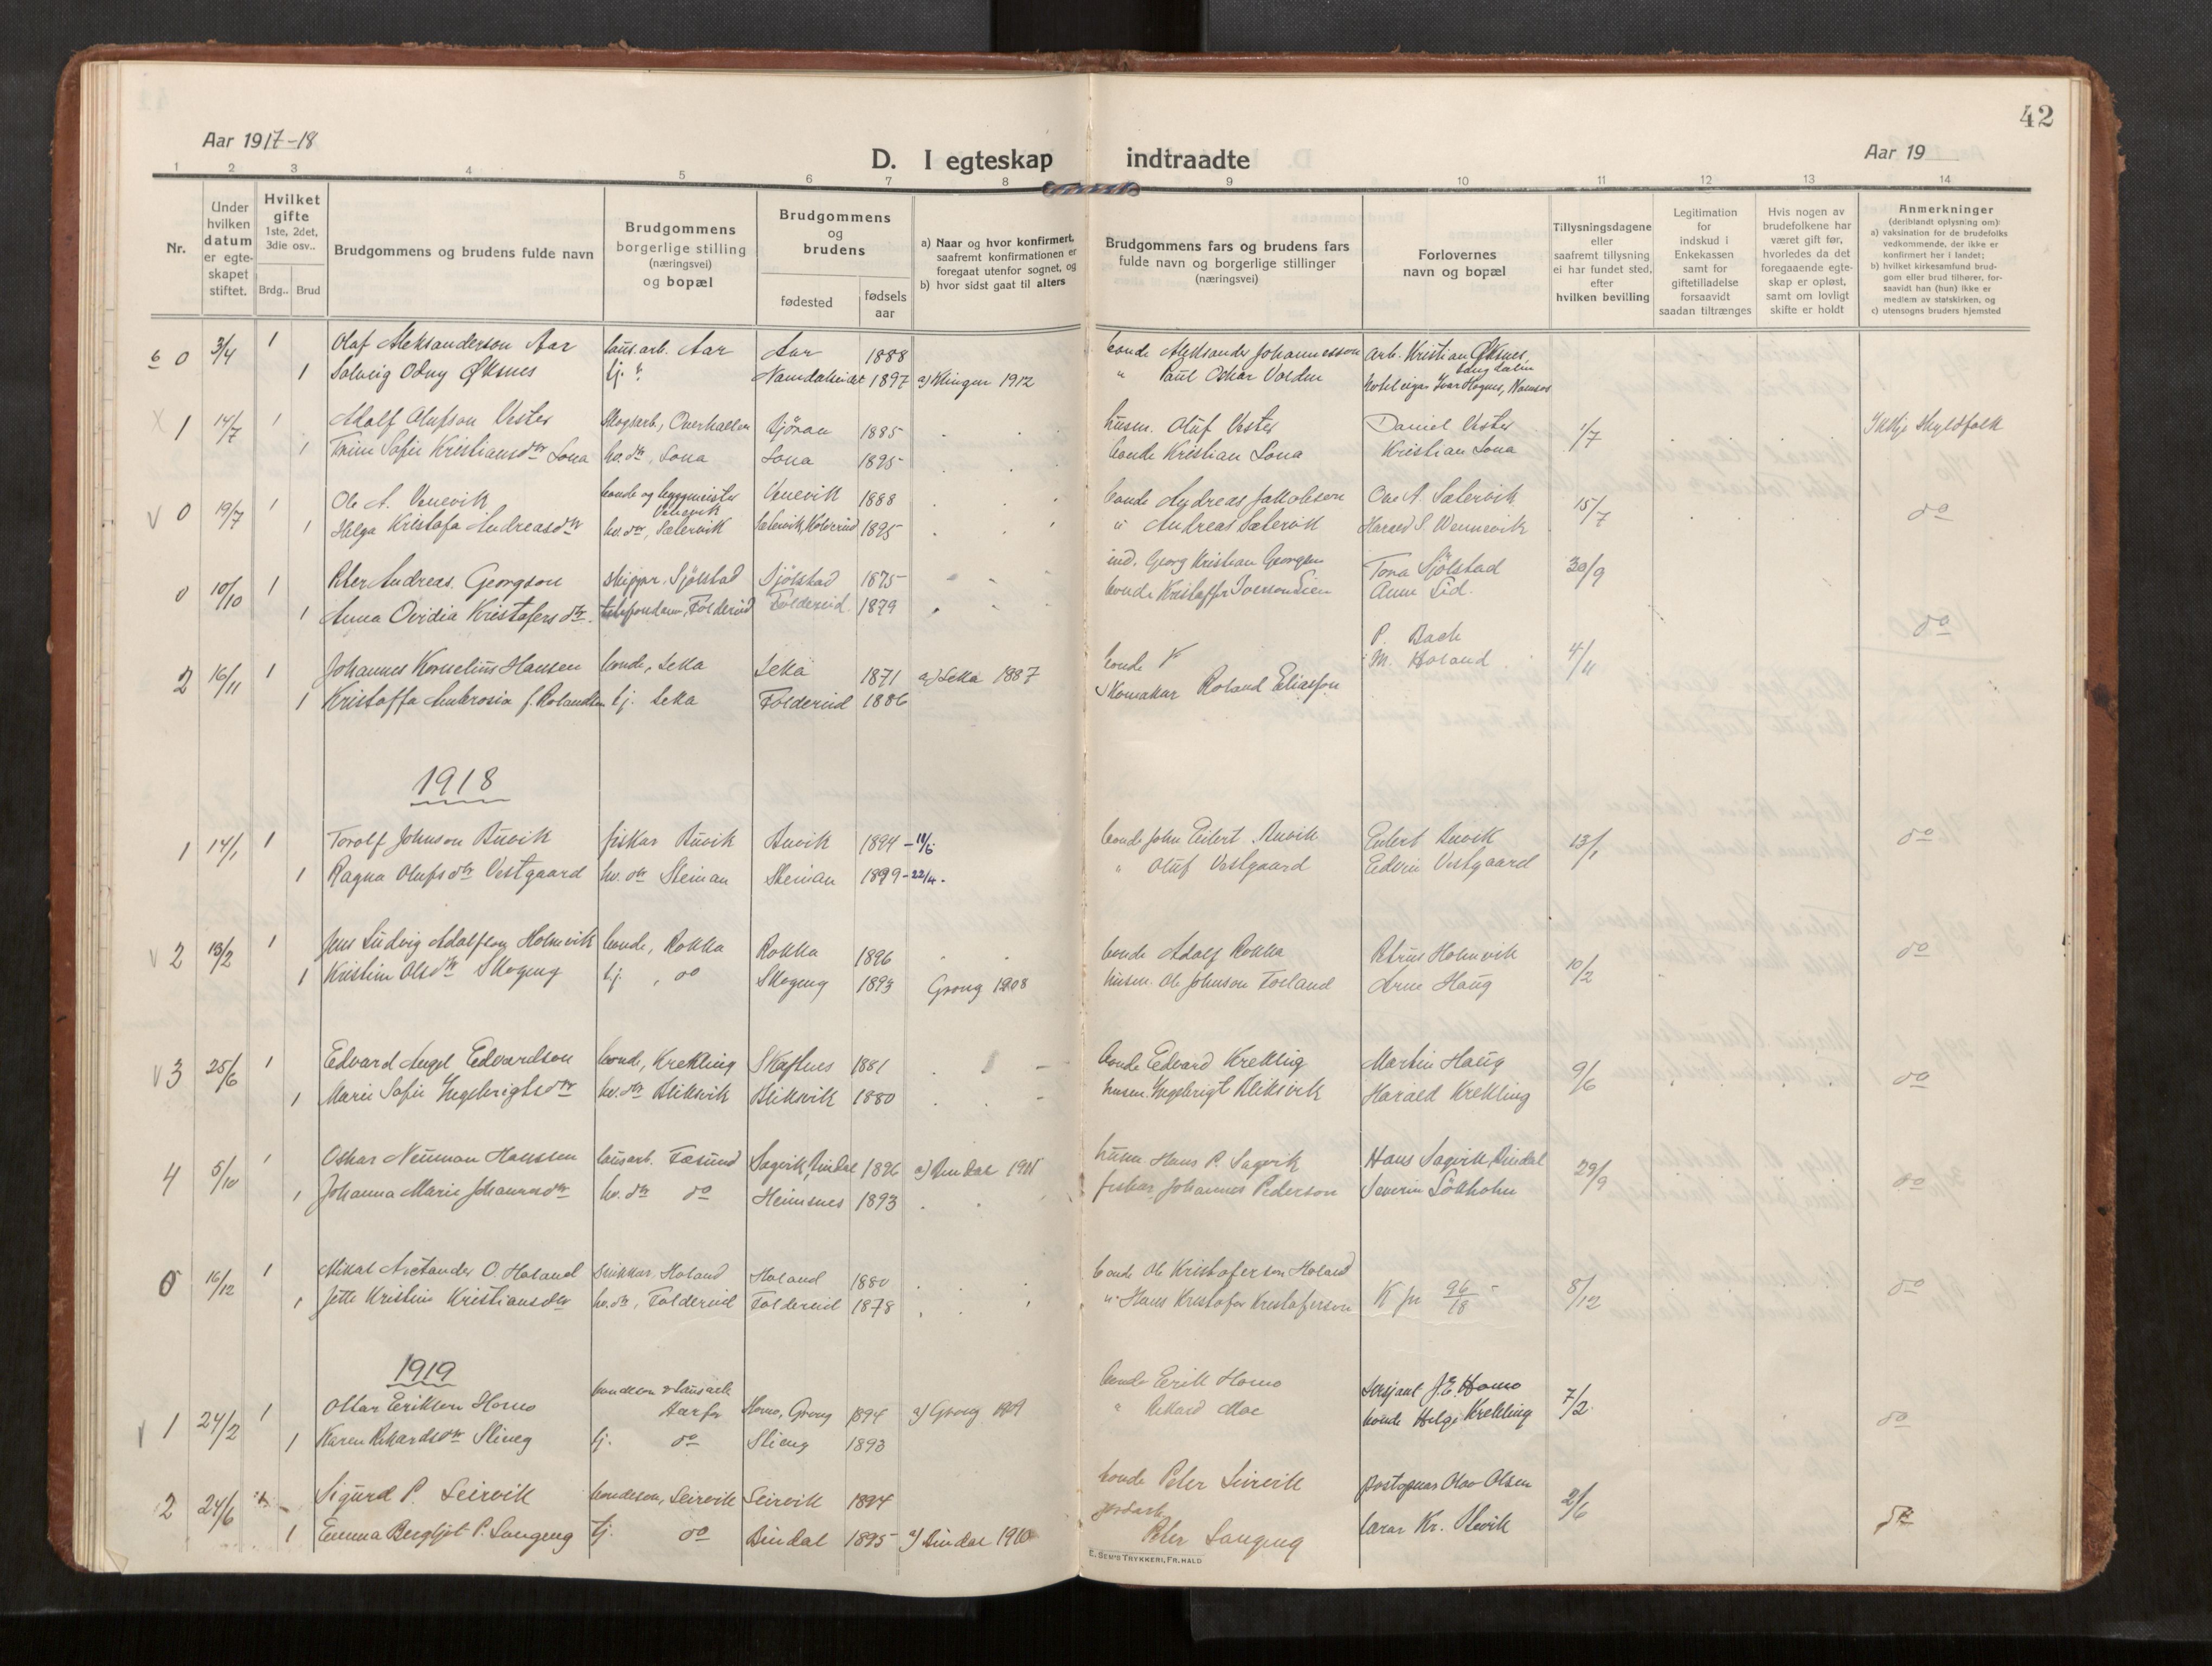 42
Aar 1917-18
D. I egteskap indtraadte
Aar 19
1 2 3 4 5 6 7 8 9 10 11 12 13 14
Nr.
Under hvilken datum er egteskapet stiftet.
Hvilket gifte 1ste, 2det, 3die osv..
Brdg.. Brud
Brudgommens og brudens fulde navn
Brudgommens borgerlige stilling (næringsvei) og bopæl
Brudgommens og brudens
fødested
fødsels aar
a) Naar og hvor konfirmert, saafremt konfirmationen er foregaat utenfor sognet, og
b) hvor sidst gaat til alters
Brudgommens fars og brudens fars fulde navn og borgerlige stillinger (næringsvei)
Forlovernes navn og bopæl
Tillysningsdagene eller saafremt tillysning ei har fundet sted, efter hvilken bevilling
Legitimation for indskud i Enkekassen samt for giftetilladelse forsaavidt saadan tiltrænges
Hvis nogen av brudefolkene har været gift før, hvorledes da det foregaaende egteskap er opløst, samt om lovligt skifte er holdt
Anmerkninger
(deriblandt oplysning om)
a) vaksination for de brudefolks vedkommende, der ikke er konfirmert her i landet;
b) hvilket kirkesamfund brudgom eller brud tilhører, forsaavidt han (hun) ikke er medlem av statskirken, og
c) utensogns bruders hjemsted
6 0 3/4 1 Olaf Aleksanderson Aar lausarb. Aar Aar 1888 bonde Aleksander Johannesson Arb. Kristian Øksnes,
1 Solveig Odny Øksnes tj. Namdalseidet 1897 a) Klingen 1912 " Paul Oskar Volden Ivar Hognes, Namsos
1 14/7 1 Adolf Olufson Vester Skogsarb., Overhallen 1885 husm. Oluf Vester Daniel Vester 1/7 Ikkje skyldfolk
1 Trine Sofie Kristiansdtr Lona hv. dtr, Lona Lona 1895 bonde Kristian Lona Kristian Lona
V 0 19/7 1 Ole A. Venevik bonde og byggmeister Venevik Venevik 1888 bonde Andreas Jakobson Ove A. Sætervik 15/7 do
1 Helga Kristofa Andreasdtr hv. dtr, Sætervik Sætervik, Kolvereid 1895 " Andreas Sætervik Harald S. Wennevik
0 10/10 1 Peter Andreas Georgson skippar. Sjölstad Sjölstad 1875 ind. Georg Kristian Georgsen Tona Sjölstad 30/9
1 Anna Ovidia Kristofersdtr. Foldereid Foldereid 1879 bonde Kristoffer Iverson Lien Anne Lid. do
2 16/11 1 Johannes Kornelius Hansen bonde, Leka Leka 1871 a) Leka 1887 bonde P. Bach 4/11
1 Kristoffa Ambrosia f. Rolandsen tj. Leka Foldereid 1886 Skomakar Roland Eliasson M. Høland
1918
1 14/1 1 Torolf Johnson Buvik fiskar Buvik Buvik 1894 - 11/6 bonde John Eilert Buvik Eilert Buvik 13/1 do
1 Ragna Olufsdtr Vestgaard hv. dtr Steinan Steinan 1899 - 22/4. " Oluf Vestgaard Edvin Vestgaard
V 2 13/2 1 Jens Ludvig Adolfson Holmvik bonde, Rokka Rokka 1896 bonde Adolf Rokka Petrus Holmvik 10/2 do
1 Kristine Olsdtr Skogeng tj. , do Skogeng 1893 Grong 1908 husm. Ole Johnson Forland Arne Haug
V 3 25/6 1 Edvard Angel Edvardson bonde, Krekling Skaftnes 1881 bonde Edvard Krekling Martin Haug 9/6 do
1 Marie Sofie Ingebrigtsdtr hv. dtr Bliksvik Bliksvik 1880 husm. Ingebrigt Bliksvik Harald Krekling
4 5/10 1 Oskar Neuman Hanssen lausarb. Sagvik, Bindal 1896 a) Bindal 1911 husm. Hans P. Sagvik Hans Sagvik, Bindal 29/9 do
1 Johanna Marie Johannesdtr hv. dtr do Heimsnes 1893 fiskar Johannes Pederson Severin Sölkholm
5 16/12 1 Mikal Arctander O. Høland snikkar, Høland Høland 1880 bonde Ole Kristoferson Høland K pr 96/18 8/12 do
1 Jette Kristine Kristiansdtr hv. dtr, Foldereid Foldereid 1878 " Hans Kristofer Kristoferson
1919
V 1 24/2 1 Ottar Erikson Homo bondeson & lausarb. Homo, Grong 1894 a) Grong 1909 bonde Erik Homo Sersjant J. E. Homo 7/2 do
1 Karen Rikardsdtr tj. do 1893 " Rikard Moe bonde Helge Krekling
2 24/6 Sigurd P. Leirvik bondeson, Leirvik Leirvik 1894 bonde Peter Leirvik postopnar Olav Olsen 2/6
1 Emma Bergljot P. Sangeng tj. do Bindal 1895 a) Bindal 1910 Peter Sangeng lærar Kr.
E. SEM'S TRYKKERI, FR.HALD